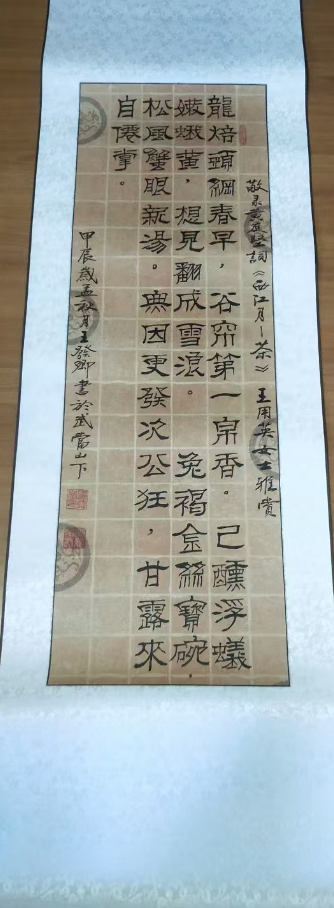 敬录黄庭坚詞《西江月—茶》 王用英女士雅賞
龍焙頭綱春早，谷帘第一泉香。已醺浮蟻
嫩蛾黄，想見翻成雪浪。 兔褐金絲寶碗，
松風蟹眼新湯。無因更發次公狂，甘露來
自僊掌。
甲辰歲孟秋月王發卿書於武當山下